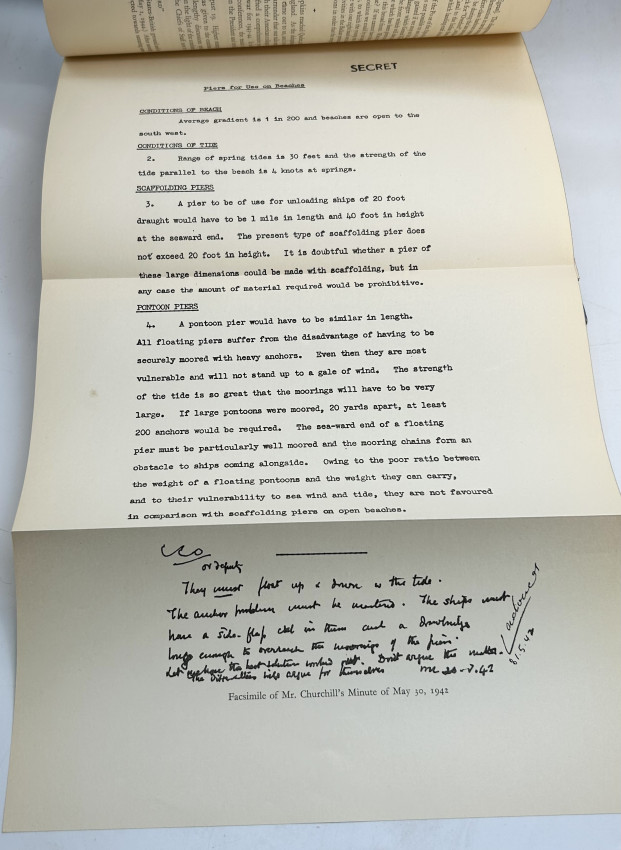 SECRET
Piers for Use on Beaches
CONDITIONS OF BEACH
Average gradient is 1 in 200 and beaches are open to the
south west.
CONDITIONS OF TIDE
2. Range of spring tides is 30 feet and the strength of the
tide parallel to the beach is 4 knots at springs.
SCAFFOLDING PIERS
3. A pier to be of use for unloading ships of 20 foot
draught would have to be 1 mile in length and 40 foot in height
at the seaward end. The present type of scaffolding pier does
not exceed 20 foot in height. It is doubtful whether a pier of
these large dimensions could be made with scaffolding, but in
any case the amount of material required would be prohibitive.
PONTOON PIERS
4. A pontoon pier would have to be similar in length.
All floating piers suffer from the disadvantage of having to be
securely moored with heavy anchors. Even then they are most
vulnerable and will not stand up to a gale of wind. The strength
of the tide is so great that the moorings will have to be very
large. If large pontoons were moored, 20 yards apart, at least
200 anchors would be required. The sea-ward end of a floating
pier must be particularly well moored and the mooring chains form an
obstacle to ships coming alongside. Owing to the poor ratio between
the weight of a floating pontoons and the weight they can carry,
and to their vulnerability to sea wind and tide, they are not favoured
in comparison with scaffolding piers on open beaches.
CCO
or deputy
They must float up & down w the tide.
The anchor problem must be mastered. The ships must
have a side-flap cut in them and a drawbridge
long enough to overreach the moorings of the piers.
Let me have the best solution worked out. Don't argue the matter.
The difficulties will argue for themselves 30.5.42
31.5.42
Facsimile of Mr. Churchill's Minute of May 30, 1942